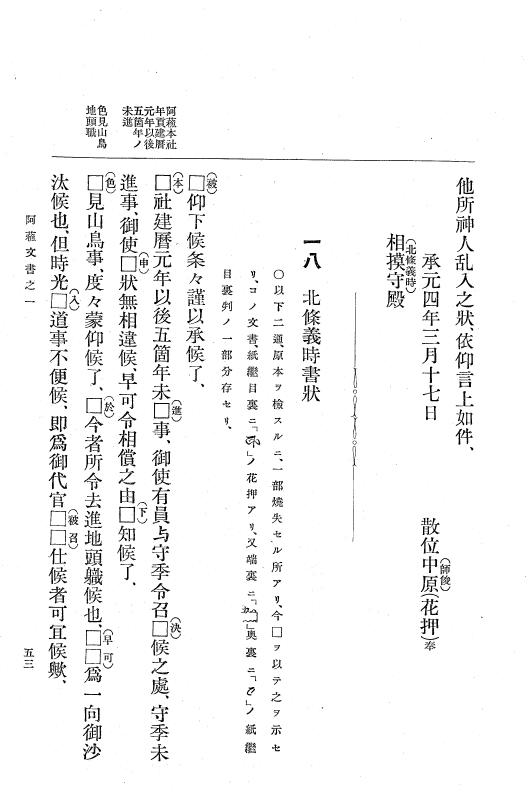 他所神人乱入之狀、依仰言上如件、
承元四年三月十七日　散位中原(花押)奉
(師俊)
(北條義時)
相摸守殿
一八　北條義時書狀
○以下二通、原本ヲ檢スルニ、一部燒失セル所アリ、今□ヲ以テ之ヲ示セ
リ、コノ文書、紙繼目裏ニ「」ノ花押アリ、又端裏ニ「」奧裏ニ「」ノ紙繼
目裏判ノ一部分存セリ、
(被)
□仰下候条々謹以承候了、
(本)　(進)　(決)
□社建曆元年以後五箇年未□事、御使有員与守季令召□候之處、守季未
(申)　(下)
進事、御使□狀無相違候、早可令相償之由□知候了、
(色)　(於)　(早可)
□見山鳥事、度々蒙仰候了、□今者所令去進地頭軄候也、□□爲一向御沙
(入)　(被召)
汰候也、但時光□道事不便候、即爲御代官□□仕候者可宜候歟、
阿蘓本社
年貢建曆
元年以後
五箇年ノ
未進
色見山鳥
地頭職
阿蘓文書之一
五三